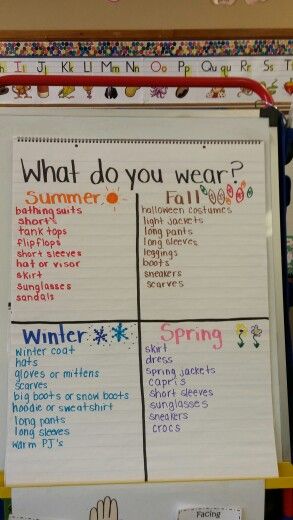 Ii Jj Kk Ll Mm Nn Oo Pp Qu qu Rr Ss
What do you wear?
Summer
bathing suits
shorts
tank tops
flip flops
short sleeves
hat or visor
skirt
sunglasses
sandals
Fall
halloween costumes
light jackets
long pants
long sleeves
leggings
boots
sneakers
scarves
Winter
winter coat
hats
gloves or mittens
scarves
big boots or snow boots
hoodie or sweatshirt
long pants
long sleeves
warm PJ's
Spring
skirt
dress
spring jackets
capris
short sleeves
sunglasses
sneakers
crocs
Facing